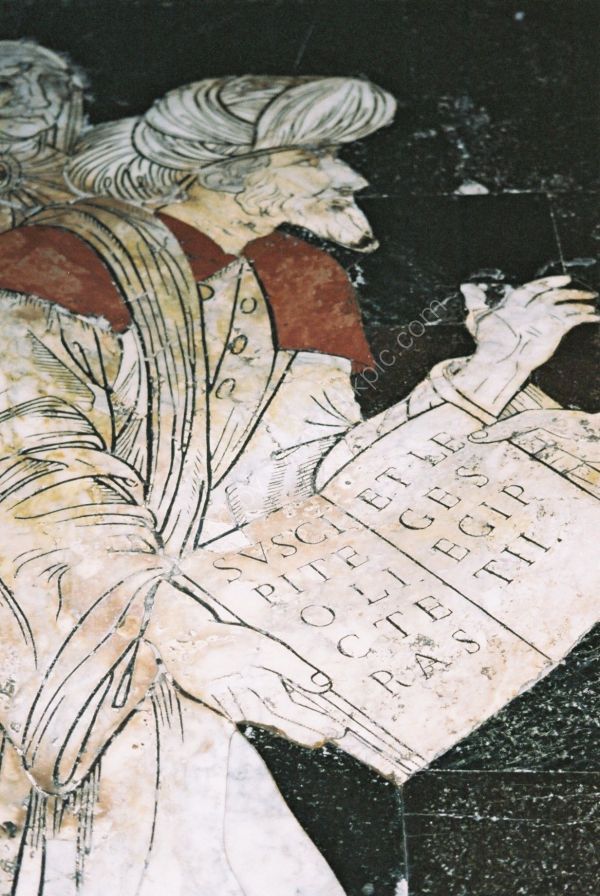 SVSCI
PITE
O LI
CTE
RAS
ET LE
GES
EGIP
TII.